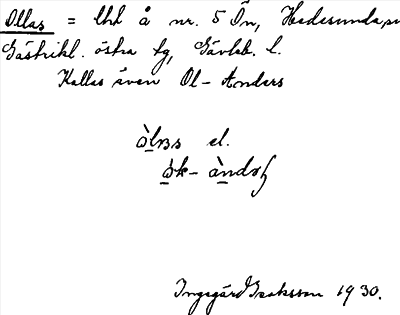 Ollas = lhl å nr. 5 Ön, Hedesunda sn
Gästrikl. östra tg, Gävleb. l.
Kallas även Ol-Anders
el.
Ingegärd Isaksson 1930.